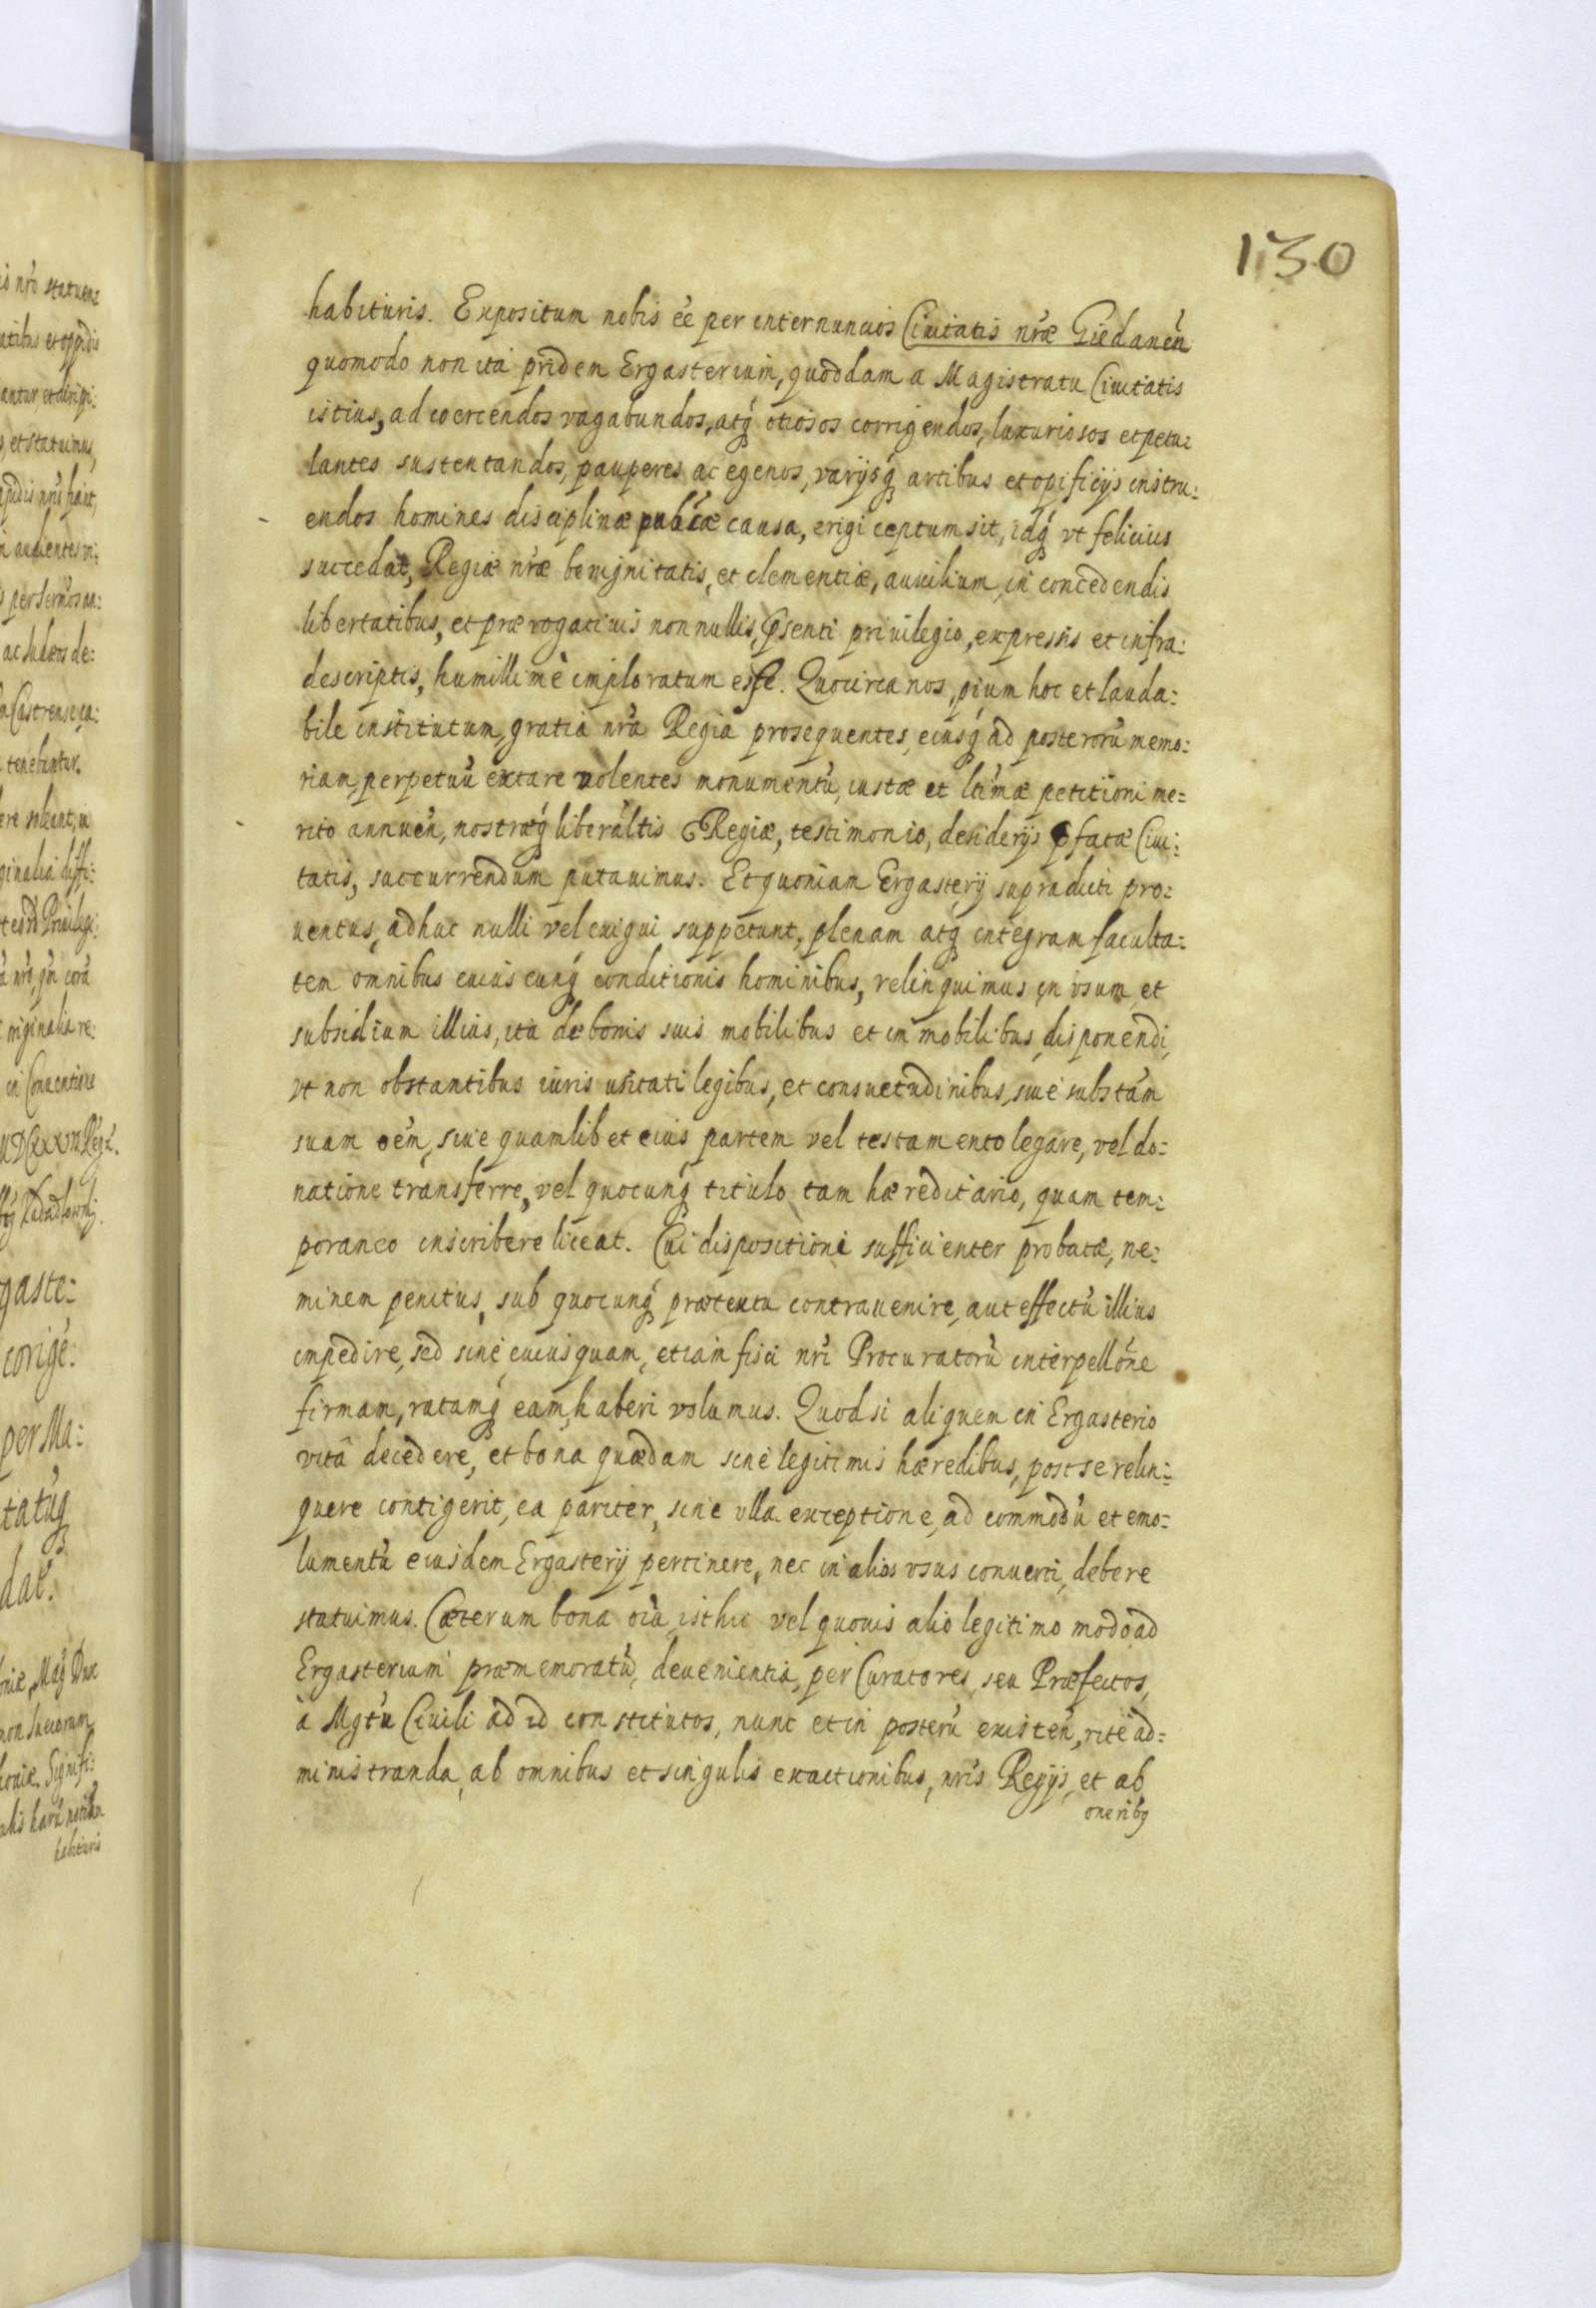 130
habituris. Expositum nobis eé per internuncios Ciuitatis nr̃æ Giedanen̄
quomodo non ita pridem Ergasterium, quoddam a Magistratu Ciuitatis
istius, ad coercendos vagabundos, atq́ otiosos corrigendos, luxuriosos et petu:
lantes sustentandos, pauperes ac egenos, varijsq́ artibus et opificijs instru:
endos homines disciplinæ pubĺcæ causa, erigi ceptum sit, idq́ vt felicius
succedat, Regiæ nr̃æ benignitatis, et clementiæ, auxilium, in concedendis
libertatibus, et prærogatiuis nonnullis, p̃senti priuilegio, expressis et infra:
descriptis, humillimè imploratum esse. Quocirca nos, pium hoc et lauda:
bile institutum, gratia nr̃a Regia prosequentes, eiusq́ ad posterorũ memo:
riam, perpetuũ extare volentes monumentũ, iustæ et ltĩmæ petitioni me:
rito annueñ, nostræq́ liberal̃tis Regiæ, testimonio, desiderijs p̃fatæ Ciui:
tatis, succurrendum putauimus. Et quoniam Ergasterij supradicti pro:
uentus, adhuc nulli vel exigui suppetunt, plenam atq́ integram faculta:
tem omnibus cuiuscunq́ conditionis hominibus, relinquimus in vsum et
subsidium illius, ita de bonis suis mobilibus et inmobilibus, disponendi,
vt non obstantibus iuris usitati legibus, et consuetudinibus, siue substãm
suam oẽm, siue quamlibet eius partem vel testamento legare, vel do:
natione transferre, vel quocunq́ titulo tam hæreditario, quam tem:
poraneo inscribere liceat. Cui dispositioni sufficienter probatæ, ne:
minem penitus, sub quocunq́ prætextu contrauenire, aut effectũ illius
impedire, sed sine cuiusquam, etiam fisci nr̃i Procuratorũ interpellõne
firmam, ratamq́ eam, haberi volumus. Quod si aliquem in Ergasterio
vitâ decedere, et bona quædam sine legitimis hæredibus, post se relin:
quere contigerit, ea pariter, sine vlla exceptione, ad commodũ et emo:
lumentũ eiusdem Ergasterij pertinere, nec in alios vsus conuerti, debere
statuimus. Cæterum bona oĩa isthic vel quouis alio legitimo modo ad
Ergasterium præmemoratũ, deuenientia, per Curatores, seu Præfectos,
à Mgt̃u Ciuili ad id constitutos, nunc et in posterũ existeñ, rite ad:
ministranda, ab omnibus et singulis exactionibus, nr̃is Regijs, et ab
oneribq